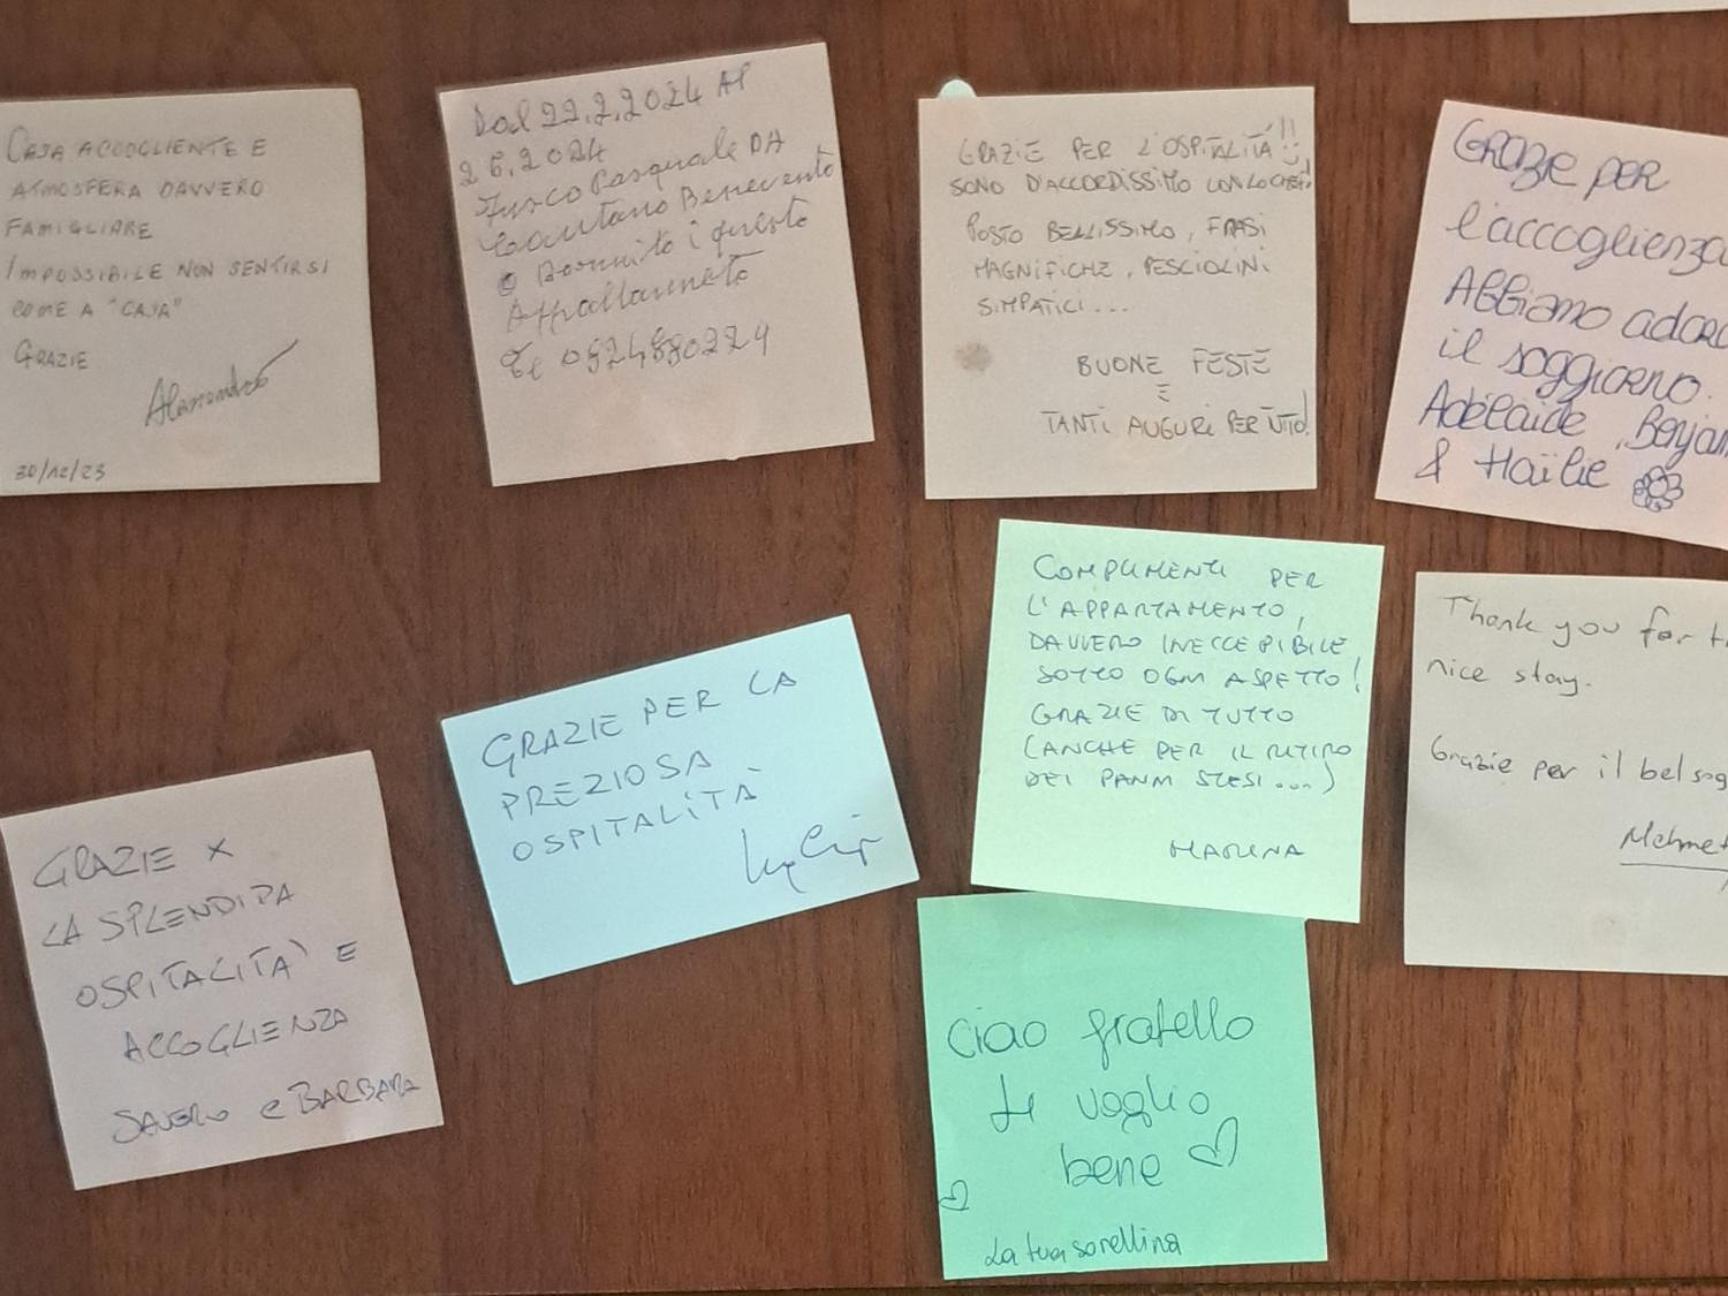 CASA ACCOGLIENTE E
ATMOSFERA DAVVERO
FAMIGLIARE
IMPOSSIBILE NON SENTIRSI
COME A "CASA"
GRAZIE
Alessandro
30/12/23
Dal 22.2.2024 Al
26.2024
Fusco Pasquale DA
Benevento
questo
Te 0824880224
GRAZIE PER L'OSPITALITÀ!!!
SONO D'ACCORDISSIMO CON LO CHEF!
POSTO BELLISSIMO, FRASI
MAGNIFICHE, PESCIOLINI
SIMPATICI...
BUONE FESTE
E
TANTI AUGURI PER TUTTO!
GRAZIE PER
l'accoglienza
ABBiamo
il soggiorno.
Adélaïde,
& Haïlie
COMPLIMENTI PER
L'APPARTAMENTO,
DAVVERO INECCEPIBILE
SOTTO OGNI ASPETTO!
GRAZIE DI TUTTO
(ANCHE PER IL RITIRO
DEI PANNI STESI...)
MARINA
Thank you for
nice stay.
Grazie per il bel
Mehmet
GRAZIE PER LA
PREZIOSA
OSPITALITÀ
GRAZIE X
LA SPLENDIDA
OSPITALITA' E
ACCOGLIENZA
SAVERIO e BARBARA
Ciao fratello
ti voglio
bene
La tua sorellina